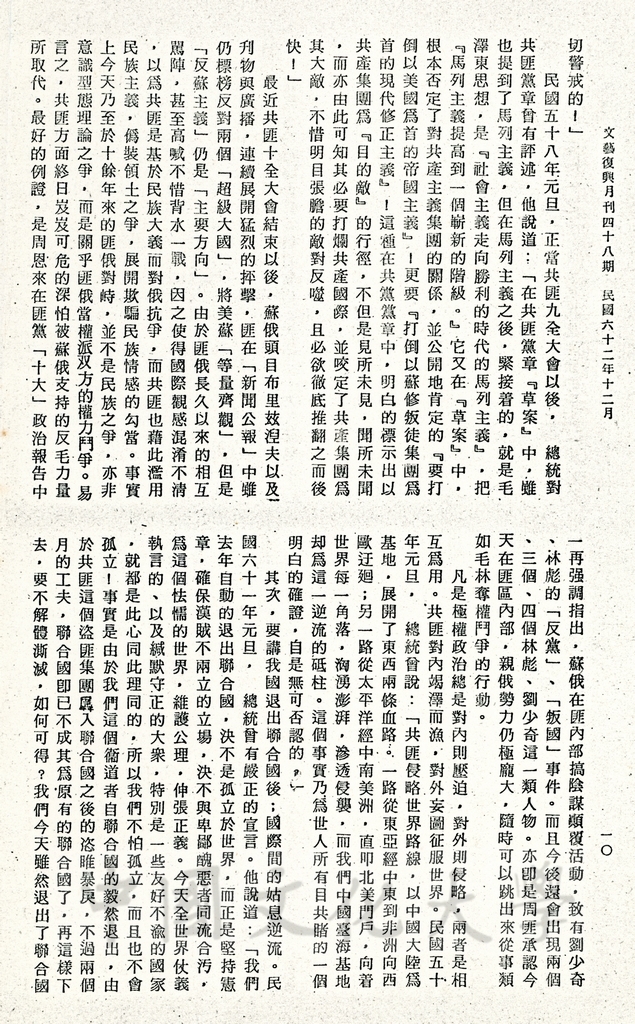 文藝復興月刊四十八期　民國六十二年十二月
一〇
切警戒的！」
　　民國五十八年元旦，正當共匪九全大會以後，　總統對
共匪黨章曾有評述，他說道：「在共匪黨章『草案』中，雖
也提到了馬列主義，但在馬列主義之後，緊接着的，就是毛
澤東思想，是『社會主義走向勝利的時代的馬列主義』，把
『馬列主義提高到一個嶄新的階級。』它又在『草案』中，
根本否定了對共產主義集團的關係，並公開地肯定的『要打
倒以美國爲首的帝國主義』！更要『打倒以蘇修叛徒集團爲
首的現代修正主義』！這種在共黨黨章中，明白的標示出以
共產集團爲『目的敵』的行徑，不但是見所未見，聞所未聞
，而亦由此可知其必要打爛共產國際，並咬定了共產集團爲
其大敵，不惜明目張膽的敵對反噬，且必欲徹底推翻之而後
快！」
　　最近共匪十全大會結束以後，蘇俄頭目布里茲湼夫以及
刋物與廣播，連續展開猛烈的抨擊，匪在「新聞公報」中雖
仍標榜反對兩個「超級大國」，將美蘇「等量齊觀」，但是
「反蘇主義」仍是「主要方向」。由於匪俄長久以來的相互
罵陣，甚至高喊不惜背水一戰，因之使得國際觀感混淆不清
，以爲共匪是基於民族大義而對俄抗爭，而共匪也藉此濫用
民族主義，僞裝領土之爭，展開欺騙民族情感的勾當。事實
上今天乃至於十餘年來的匪俄對峙，並不是民族之爭，亦非
意識型態理論之爭，而是關乎匪俄當權派双方的權力鬥爭。易
言之，共匪方面終日岌岌可危的深怕被蘇俄支持的反毛力量
所取代。最好的例證，是周恩來在匪黨「十大」政治報告中
一再强調指出，蘇俄在匪內部搞陰謀顛覆活動，致有劉少奇
、林彪的「反黨」、「叛國」事件。而且今後還會出現兩個
、三個、四個林彪、劉少奇這一類人物。亦卽是周匪承認今
天在匪區內部，親俄勢力仍極龐大，隨時可以跳出來從事類
如毛林奪權鬥爭的行動。
　　凡是極權政治總是對內則壓迫，對外則侵略，兩者是相
互爲用。共匪對內竭澤而漁，對外妄圖征服世界。民國五十
年元旦，　總統曾說：「共匪侵略世界路線，以中國大陸爲
基地，展開了東西兩條血路。一路從東亞經中東到非洲向西
歐迂廻；另一路從太平洋經中南美洲，直叩北美門戶，向着
世界每一角落，洶湧澎湃，滲透侵襲，而我們中國臺海基地
却爲這一逆流的砥柱。這個事實乃爲世人所有目共賭的一個
明白的確證，自是無可否認的。」
　　其次，要講我國退出聯合國後；國際間的姑息逆流。民
國六十一年元旦，　總統曾有嚴正的宣言。他說道：「我們
去年自動的退出聯合國，決不是孤立於世界，而正是堅持憲
章，確保漢賊不兩立的立場，決不與卑鄙醜惡者同流合污，
爲這個怯懦的世界，維護公理，伸張正義。今天全世界仗義
執言的、以及緘默守正的大衆，特別是一些友好不渝的國家
，就都是此心同此理同的，所以我們不怕孤立，而且也不會
孤立！事實是由於我們這個衞道者自聯合國的毅然退出，由
於共匪這個盜匪集團羼入聯合國之後的恣睢暴戾，不過兩個
月的工夫，聯合國卽已不成其爲原有的聯合國了，再這樣下
去，要不解體澌滅，如何可得？我們今天雖然退出了聯合國
中國文化大學